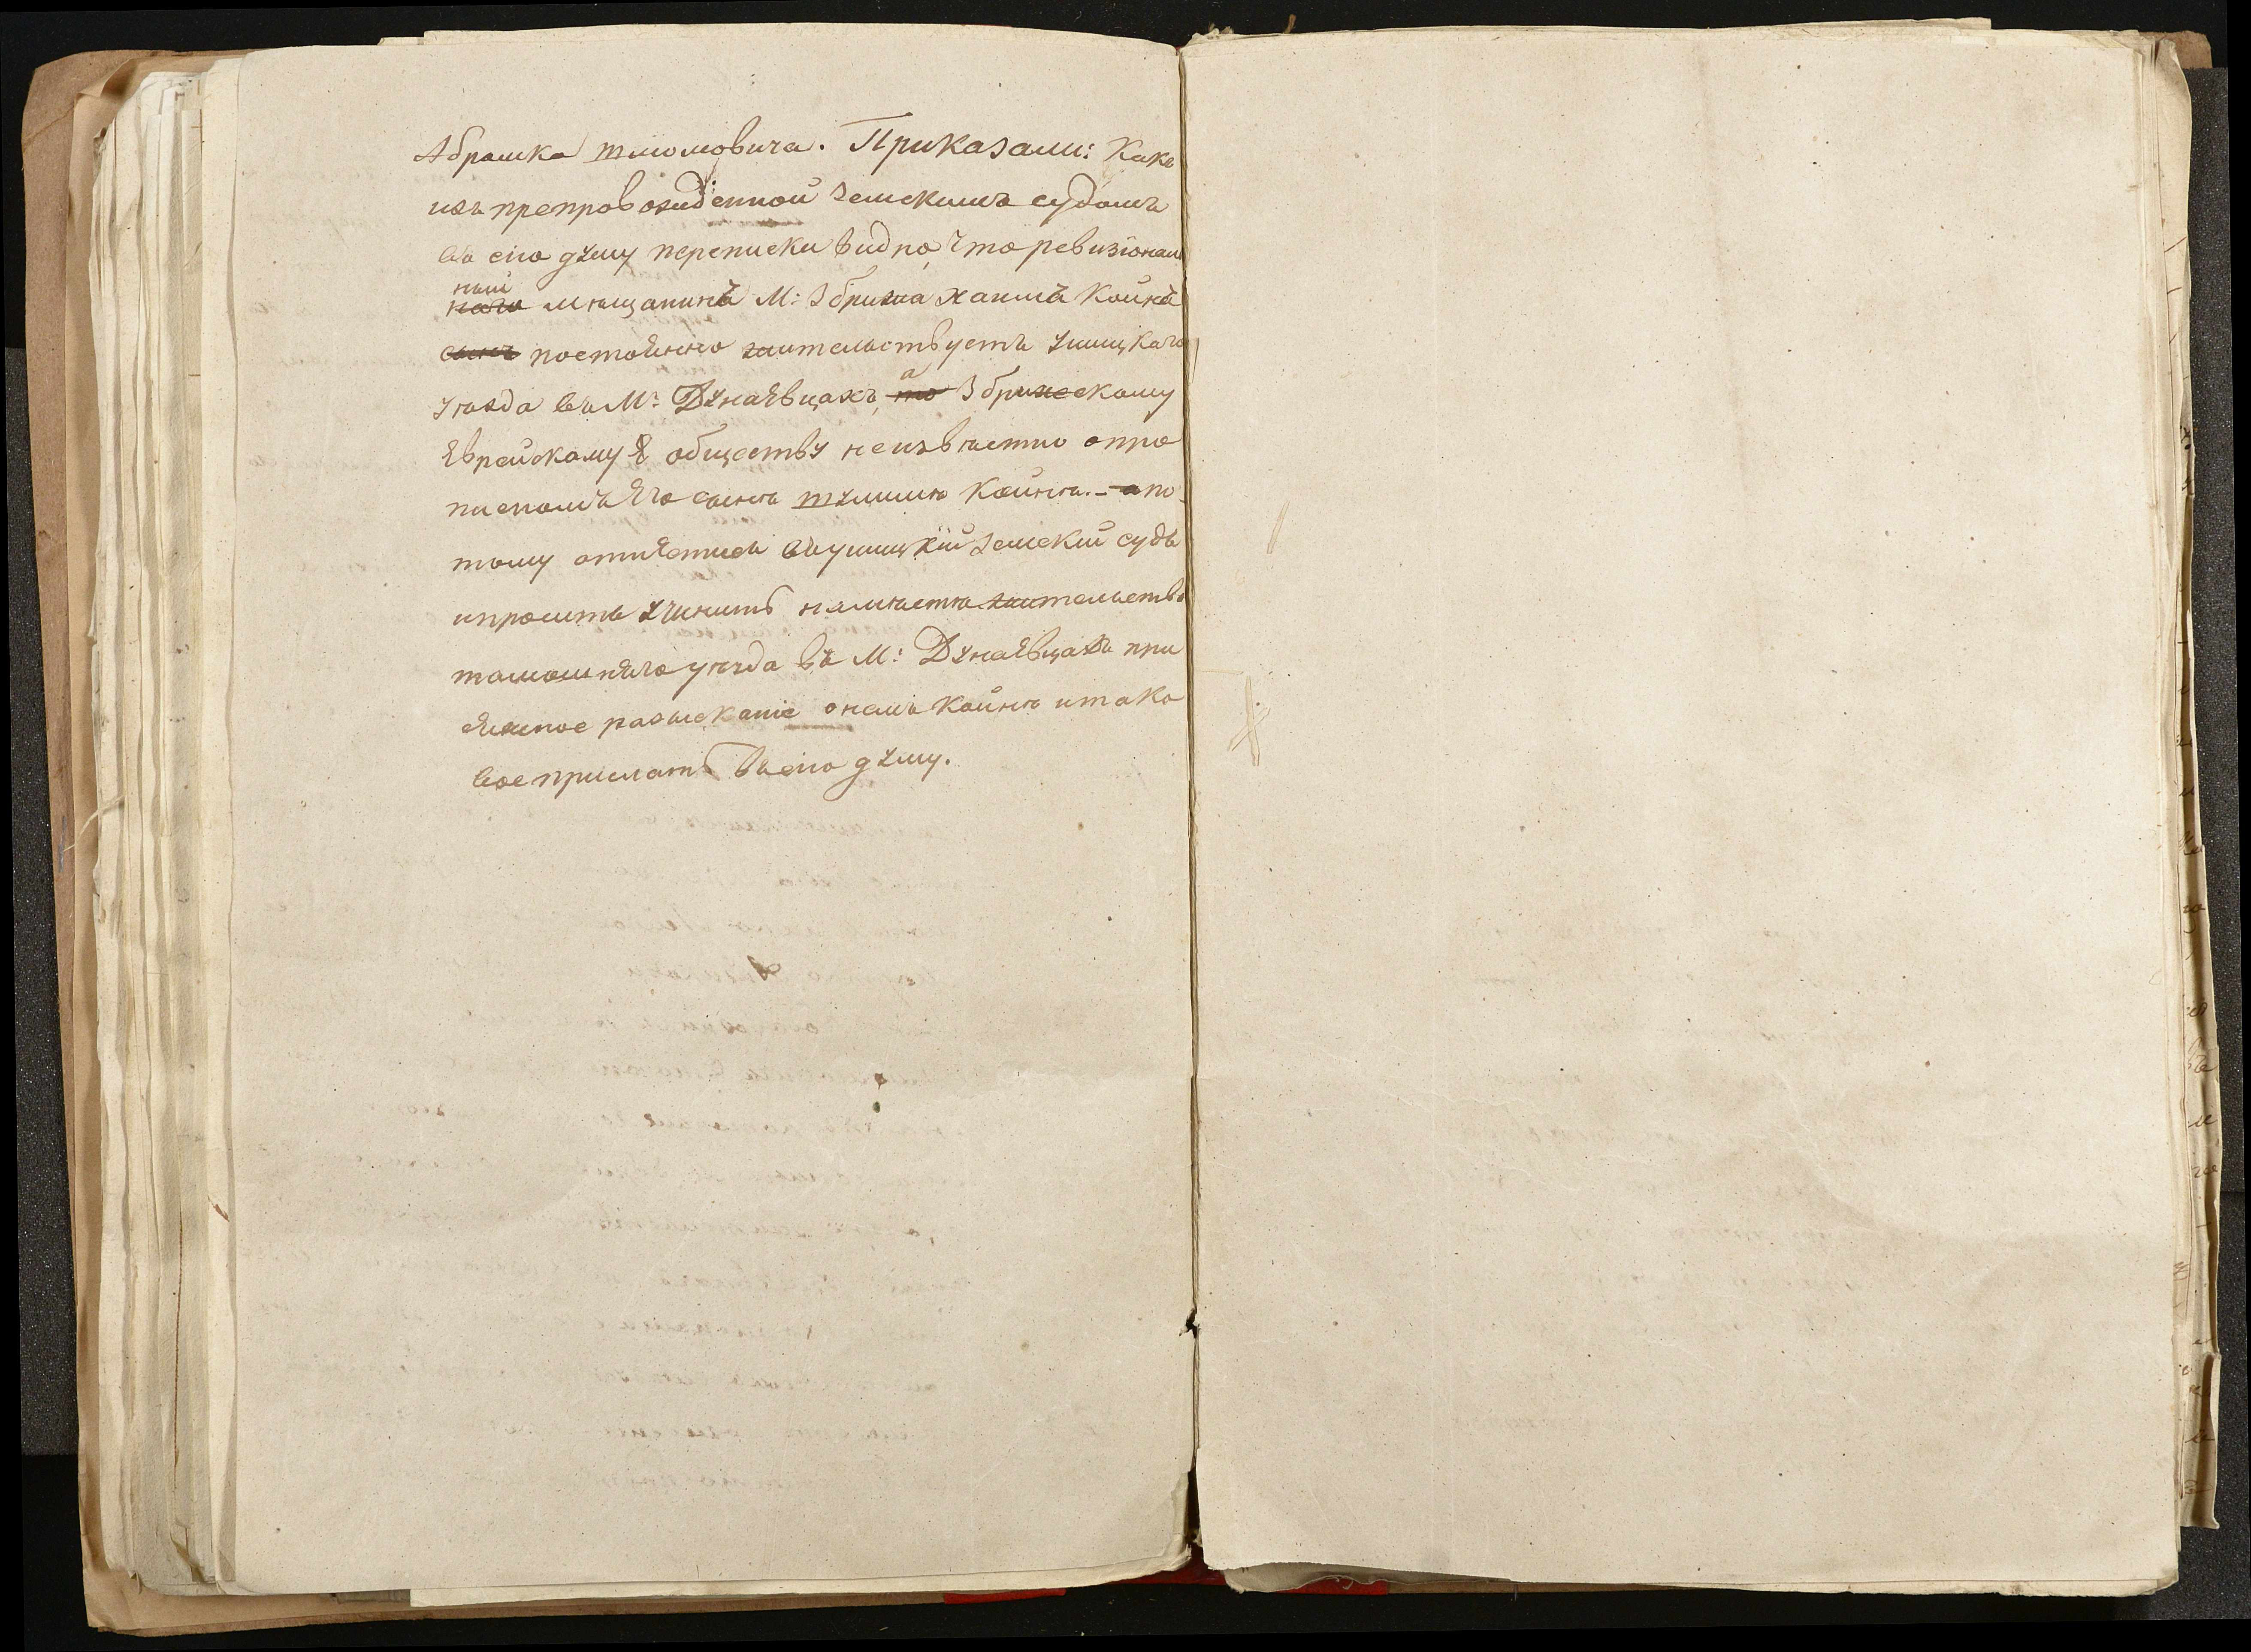 Абрамка шмюловича. Приказали: Какъ
изъ препровожденной Земскимъ судомъ
въ сію думу переписки видно, что ревизіональ
ный
наго мещанинъ М: Збрижа хаимъ Койна
сынъ постоянно жительствуетъ ушицкаго
уѣзда въ М: Дунаявцахъ, а то Збрижскому
Яврейскому обществу неизвѣстно опро
писномъ Яго сынѣ шулимѣ Койнѣ. - а по
тому отнястись въ ушицкій Земскій судъ
ипросить учинить наместѣ жительства
тамошняго уѣзда въ М: Дунаявцахъ при
сяжное розысканіе ономъ Койнѣ итако
вое прислать въ сію думу.